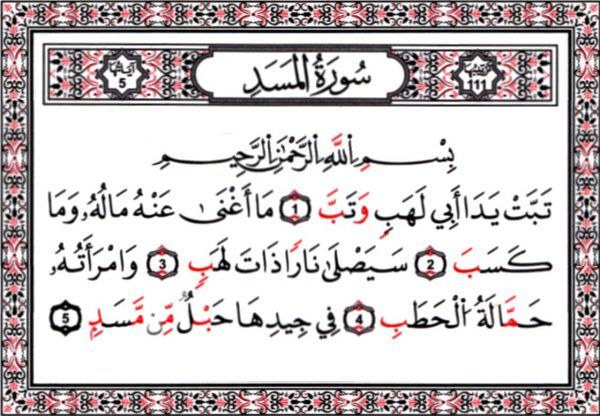 آياتها 5 سُورَةُ المَسَدِ ترتيبها 111
بِسْمِ اللَّهِ الرَّحْمَٰنِ الرَّحِيمِ
تَبَّتْ يَدَا أَبِي لَهَبٍ وَتَبَّ 1 مَا أَغْنَىٰ عَنْهُ مَالُهُ وَمَا
كَسَبَ 2 سَيَصْلَىٰ نَارًا ذَاتَ لَهَبٍ 3 وَامْرَأَتُهُ
حَمَّالَةَ الْحَطَبِ 4 فِي جِيدِهَا حَبْلٌ مِّن مَّسَدٍ 5